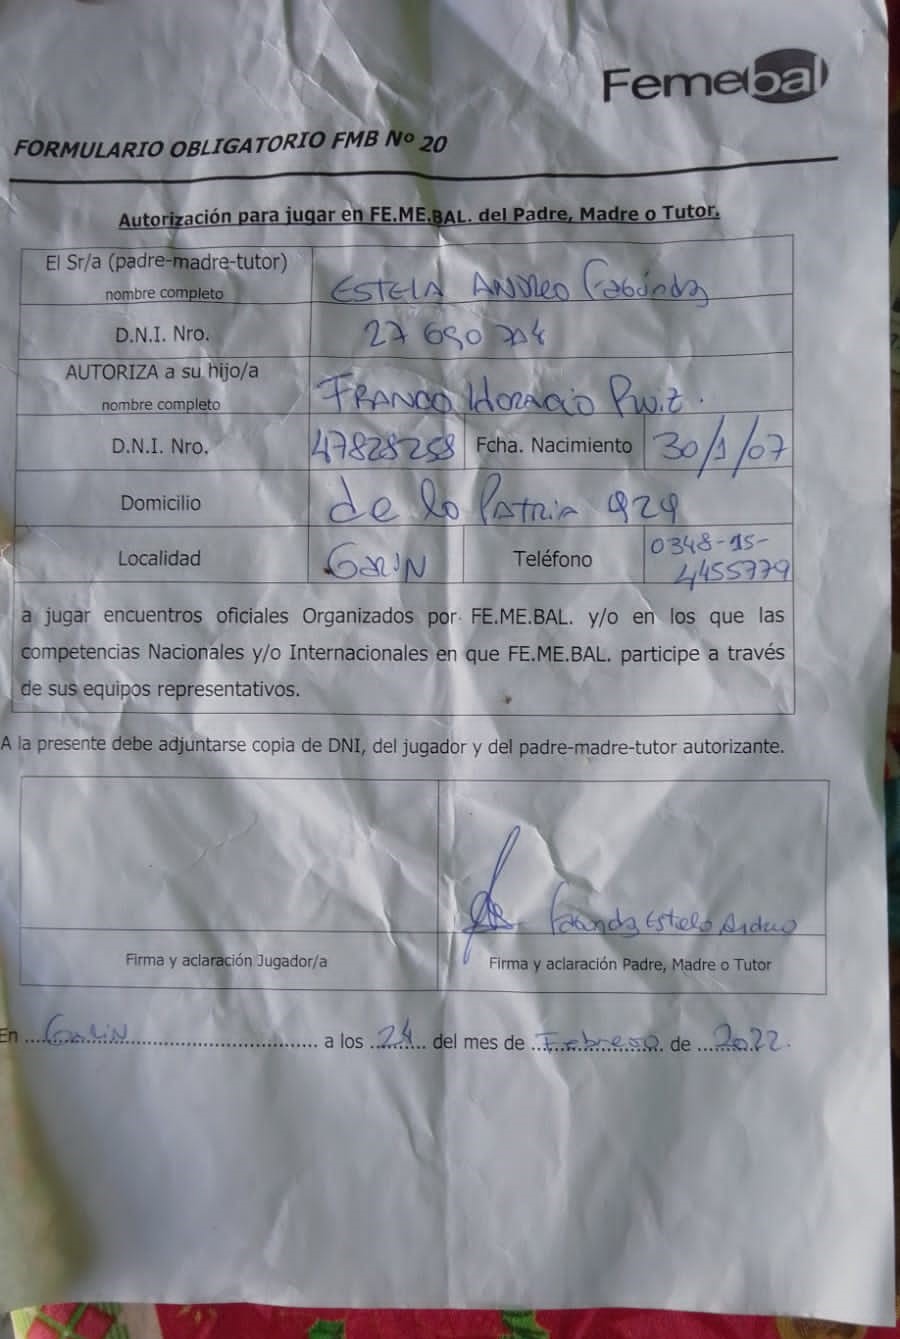 Femebal
FORMULARIO OBLIGATORIO FMB Nº 20
Autorización para jugar en FE.ME.BAL. del Padre, Madre o Tutor.
El Sr/a (padre-madre-tutor)
nombre completo
ESTELA ANDREO
D.N.I. Nro.
27 690
AUTORIZA a su hijo/a
nombre completo
FRANCO HORACIO RUIZ.
D.N.I. Nro. 47828258 Fcha. Nacimiento 30/1/07
Domicilio de la Patria 929
Localidad GARIN Teléfono 0348-15-
4455779
a jugar encuentros oficiales Organizados por FE.ME.BAL. y/o en los que las
competencias Nacionales y/o Internacionales en que FE.ME.BAL. participe a través
de sus equipos representativos.
A la presente debe adjuntarse copia de DNI, del jugador y del padre-madre-tutor autorizante.
Estela
Firma y aclaración Jugador/a Firma y aclaración Padre, Madre o Tutor
En GARIN a los 24 del mes de Febrero de 2022.